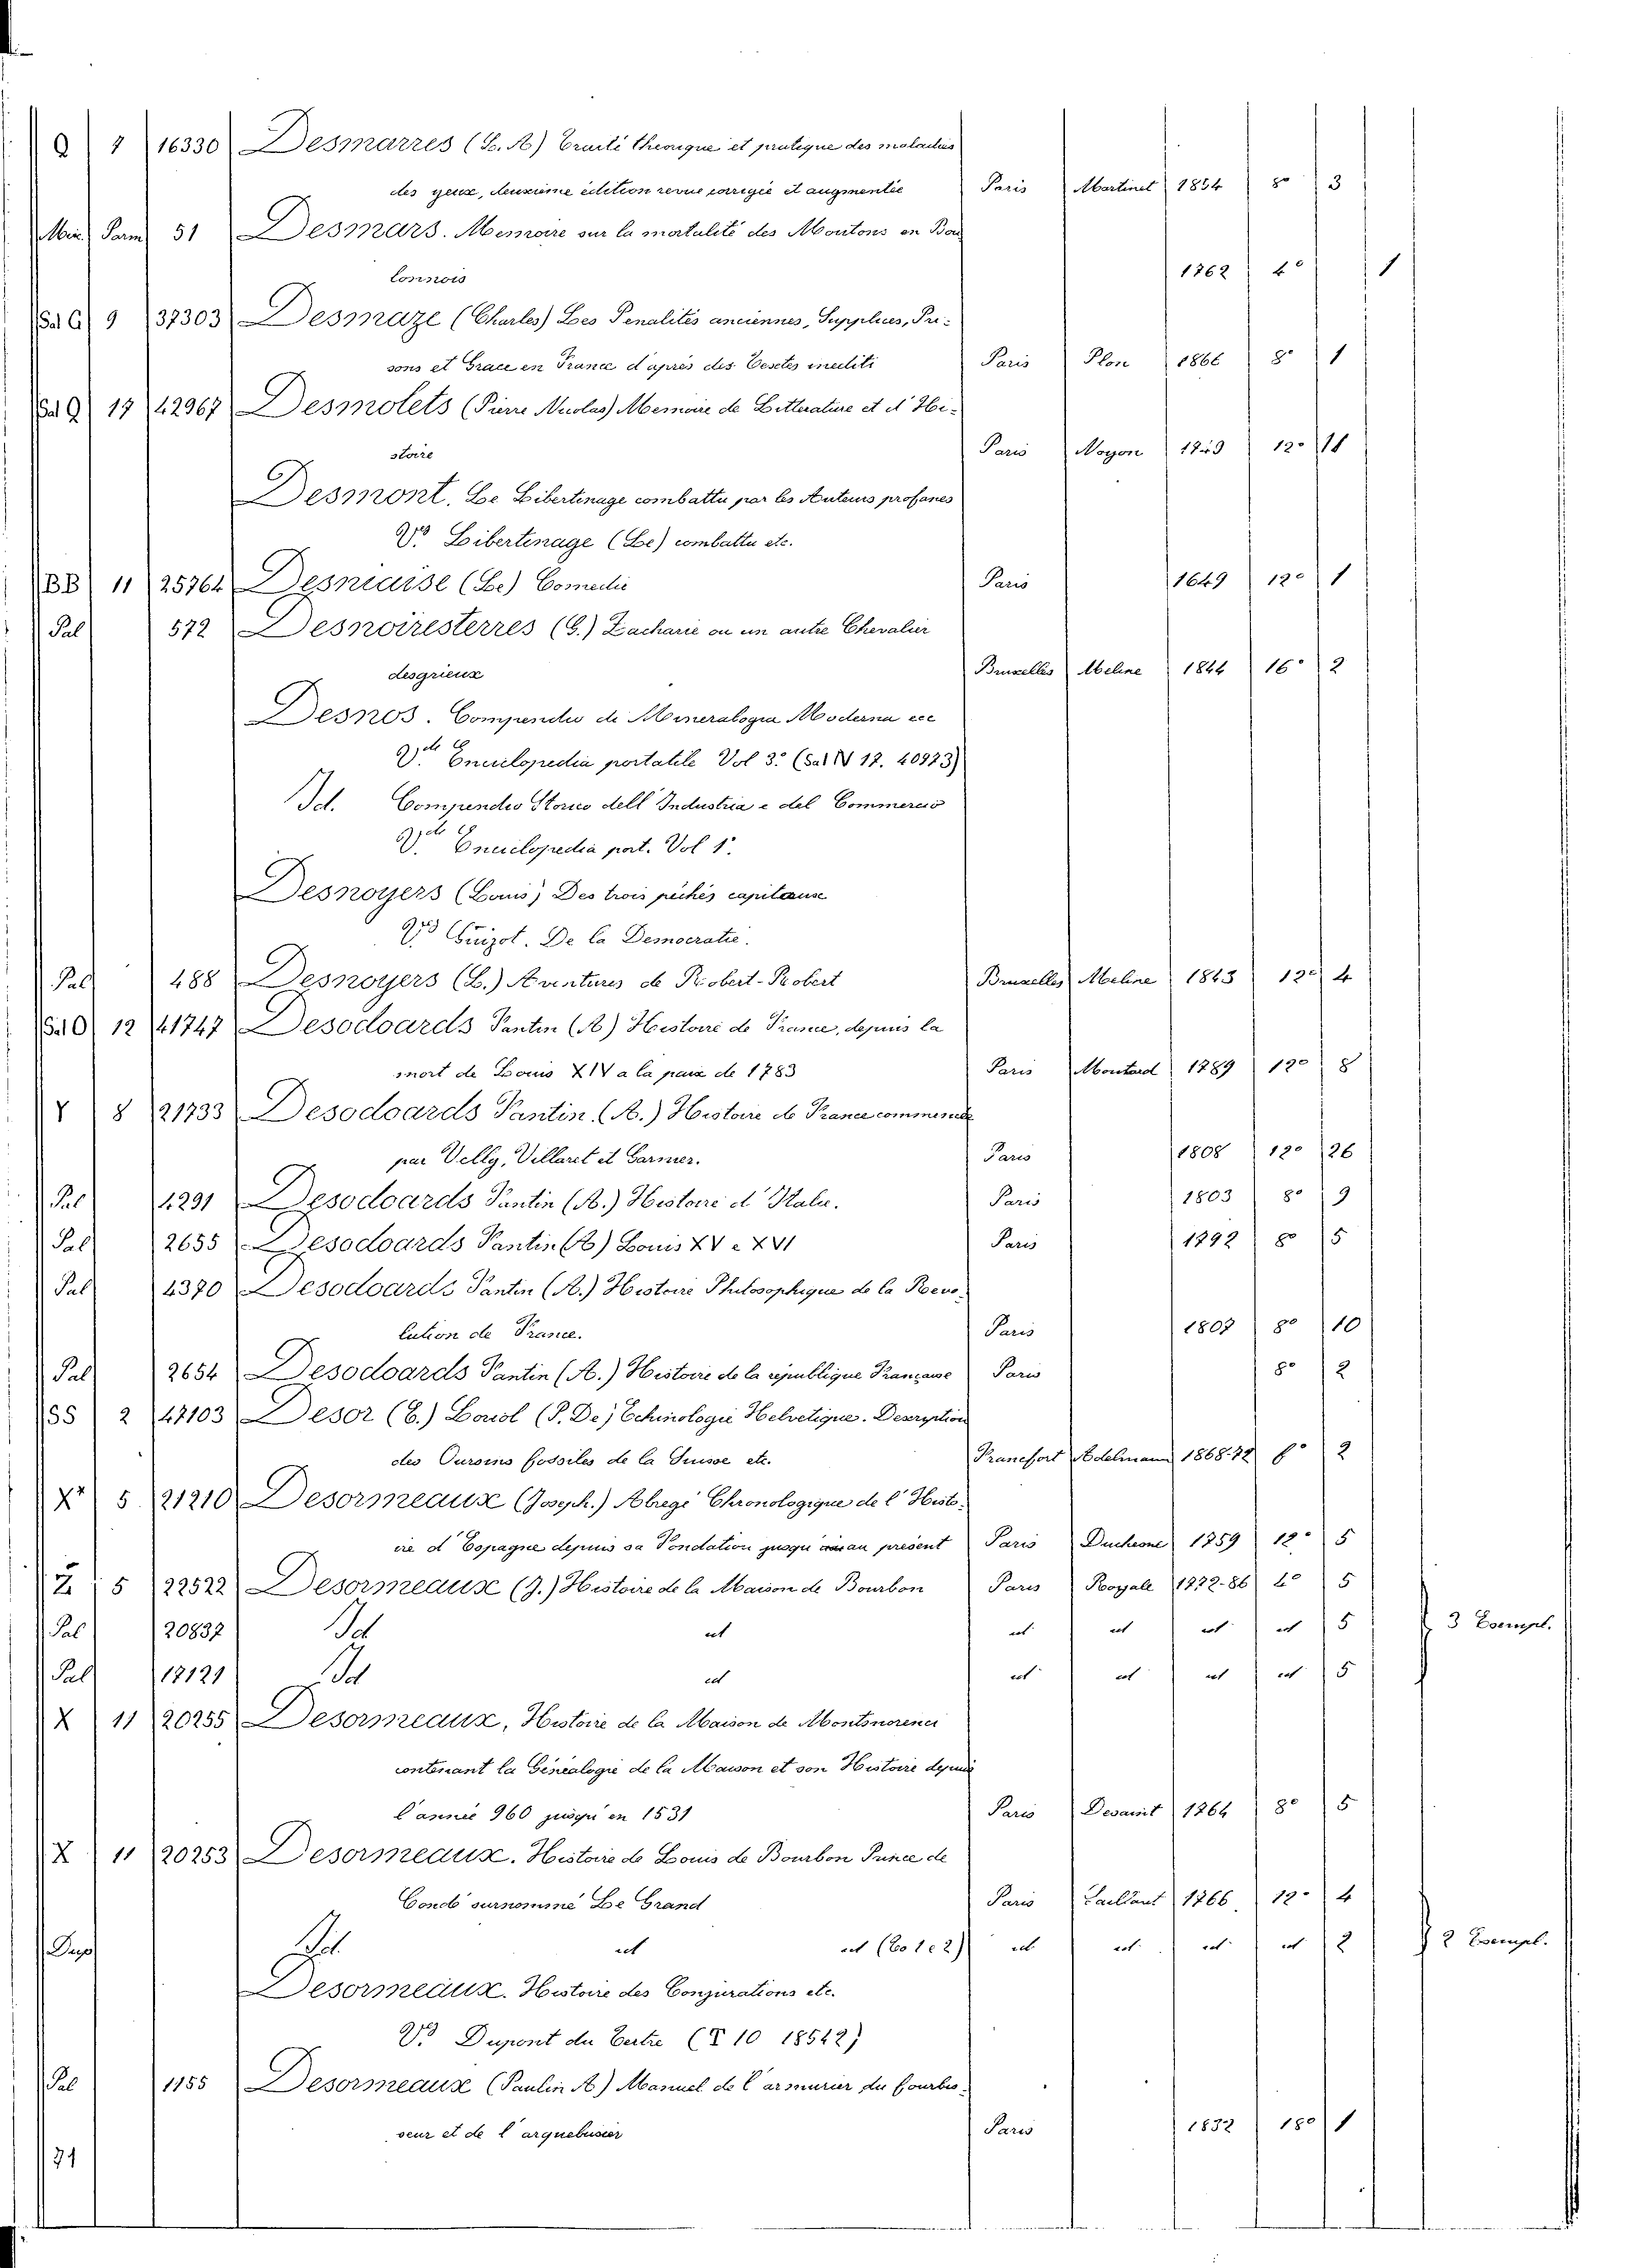 Q 7 16330 Desmarres (L. A.) Traité theorique et pratique des maladies
des yeux, deuxieme edition revue corrigée et augmentée Paris Martinet 1854 8° 3
Min. Parm 51 Desmars. Memoire sur la mortalité des Moutons en Bou
lonnois 1762 4° 1
Sal G 9 37303 Desmaze (Charles) Les Penalités anciennes, Supplices, Pri-
sons et Grace en France d'après des Textes inediti Paris Plon 1866 8° 1
Sal Q 17 42967 Desmolets (Pierre Nicolas) Memoire de Litterature et d'Hi-
stoire Paris Noyon 1749 12° 11
Desmont. Le Libertinage combattu par les Auteurs profanes
V° Libertinage (Le) combattu etc.
BB 11 25764 Desniaise (Le) Comedie Paris 1649 12° 1
Pal 572 Desnoiresterres (G.) Zacharie ou un autre Chevalier
desgrieux Bruxelles Meline 1844 16° 2
Desnos. Compendio di Mineralogia Moderna ecc
V. Enciclopedia portatile Vol 3° (Sal N 12. 40973)
Id. Compendio Storico dell'Industria e del Commercio
V. Enciclopedia port. Vol 1°.
Desnoyers (Louis) Des trois péchés capitaux
V° Guizot. De la Democratie.
Pal 488 Desnoyers (L.) Aventures de Robert-Robert Bruxelles Meline 1843 12° 4
Sal O 12 41747 Desodoards Fantin (A.) Histoire de France, depuis la
mort de Louis XIV a la paix de 1783 Paris Moutard 1789 12° 8
Y 8 21733 Desodoards Fantin. (A.) Histoire de France commencée
par Velly, Villaret et Garnier. Paris 1808 12° 26
Pal 4291 Desodoards Fantin (A.) Histoire d'Italie. Paris 1803 8° 9
Pal 2655 Desodoards Fantin (A) Louis XV e XVI Paris 1792 8° 5
Pal 4370 Desodoards Fantin (A.) Histoire Philosophique de la Revo-
lution de France. Paris 1807 8° 10
Pal 2654 Desodoards Fantin (A.) Histoire de la république Française Paris 8° 2
SS 2 47103 Desor (E.) Loriol (P. De) Echinologie Helvetique. Description
des Oursins fossiles de la Suisse etc. Francfort Adelmann 1868-72 f° 2
X* 5 21210 Desormeaux (Joseph.) Abregé Chronologique de l'Histo-
ire d'Espagne depuis sa Fondation jusqu'au present Paris Duchesne 1759 12° 5
Z 5 22522 Desormeaux (J.) Histoire de la Maison de Bourbon Paris Royale 1772-86 4° 5
Pal 20837 Id id id id id id 5 3 Esempl.
Pal 17121 Id id id id id id 5
X 11 20255 Desormeaux, Histoire de la Maison de Montmorenci
contenant la Généalogie de la Maison et son Histoire depuis
l'année 960 jusqu'en 1531 Paris Desaint 1764 8° 5
X 11 20253 Desormeaux. Histoire de Louis de Bourbon Prince de
Condé surnommé Le Grand Paris Saillant 1766. 12° 4
Dup Id. id id (To 1 e 2) id id id id 2 2 Esempl.
Desormeaux. Histoire des Conjurations etc.
V° Duport du Tertre (T 10 18542)
Pal 1155 Desormeaux (Paulin A.) Manuel de l'armurier du fourbis-
seur et de l'arquebusier Paris 1832 18° 1
21